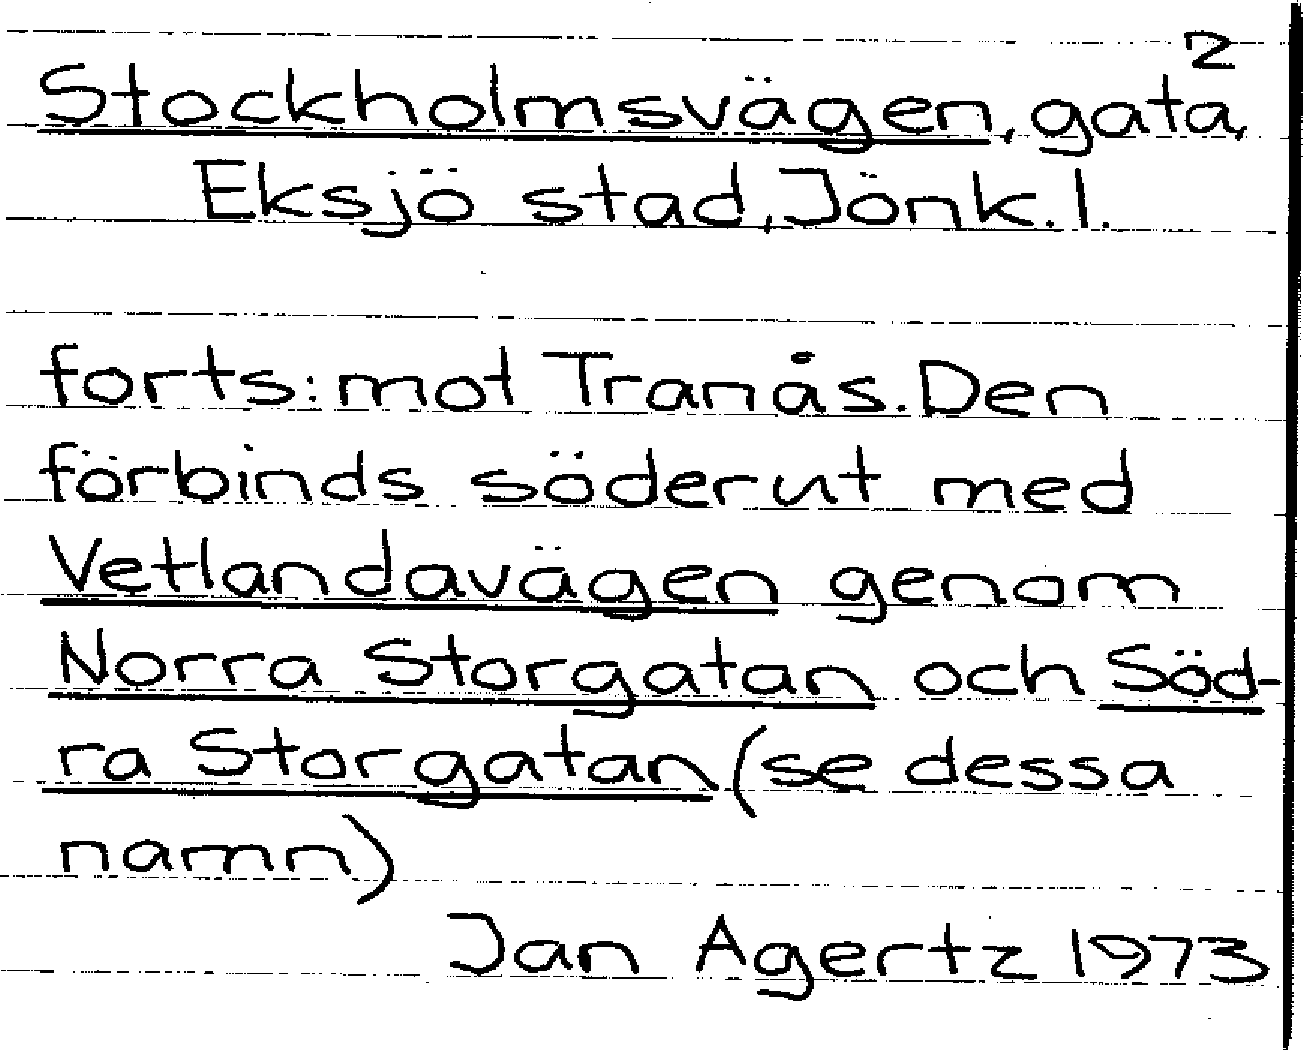 2
Stockholmsvägen, gata,
Eksjö stad, Jönk. l.
forts: mot Tranås. Den
förbinds söderut med
Vetlandavägen genom
Norra Storgatan och Söd-
ra Storgatan (se dessa
namn)
Jan Agertz 1973